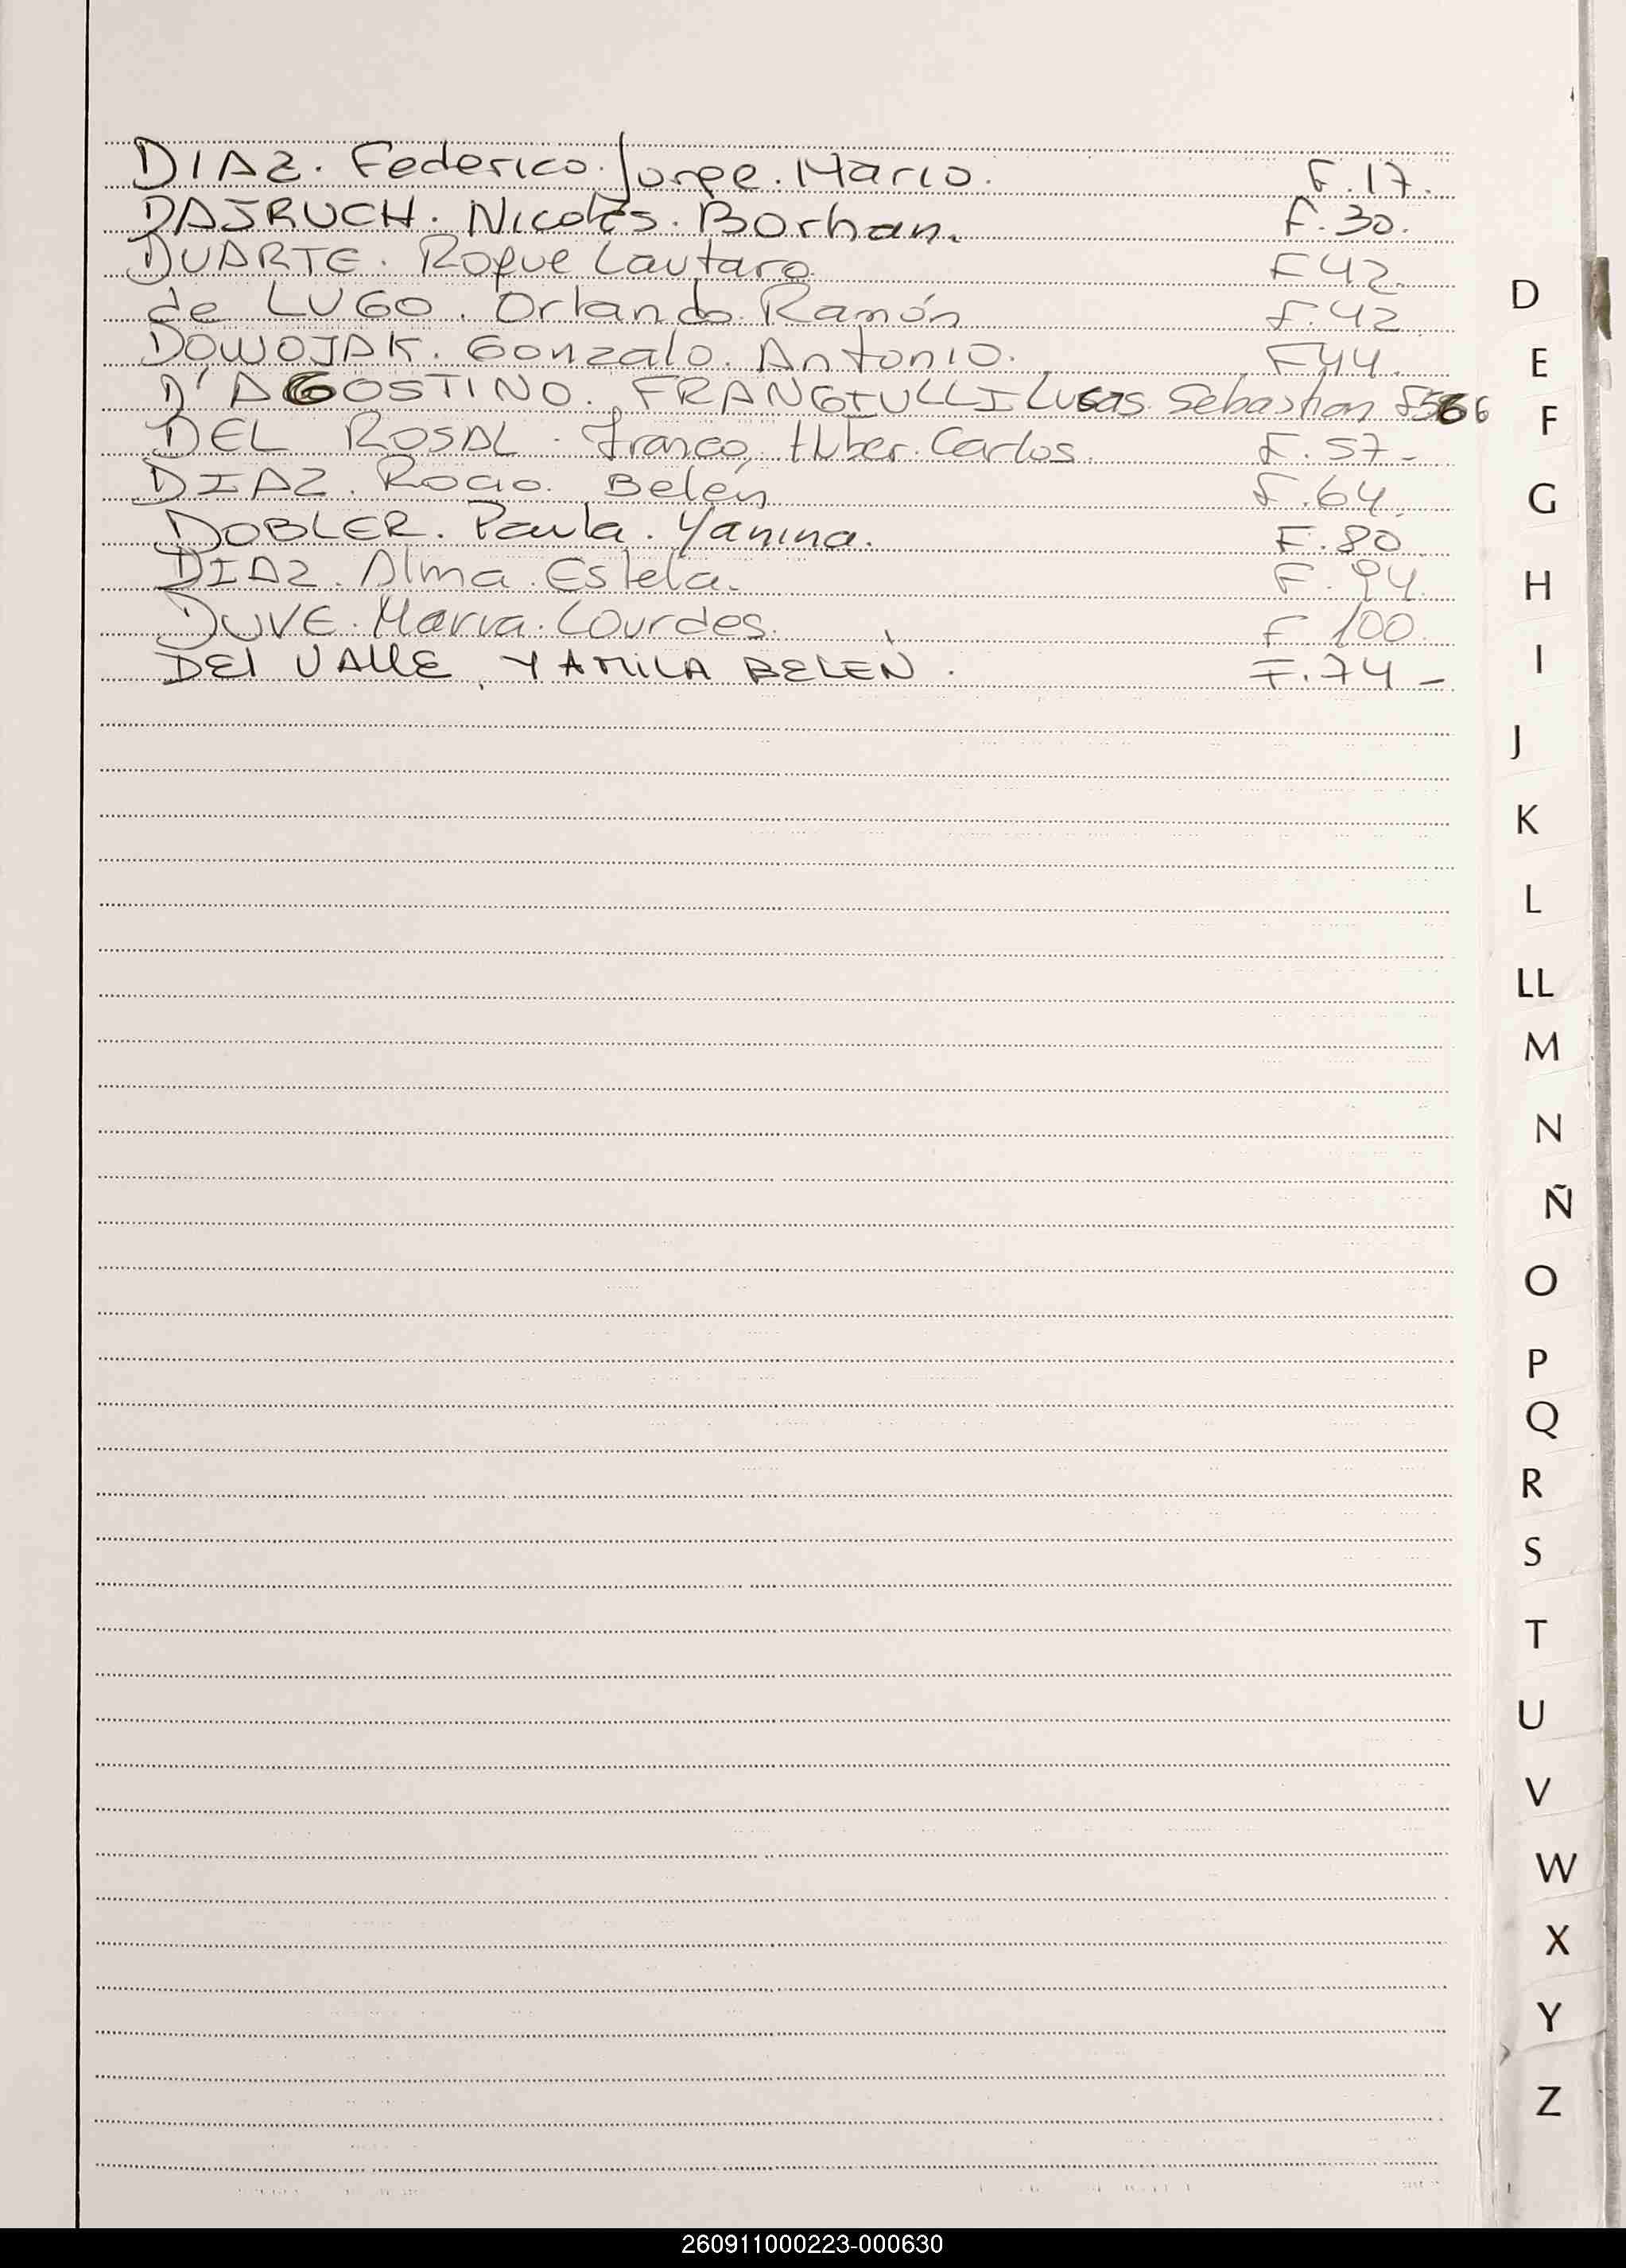 DIAZ. Federico. Jorge. Mario. F.17.
DAJRUCH. Nicolás. Borhan. F.30.
DUARTE. Roque Lautaro F42.
de LUGO. Orlando Ramón F.42
DOWOJAK. Gonzalo. Antonio. F44.
D'AGOSTINO. FRANGIULLI Lucas Sebastian
DEL ROSAL. Franco, Huber. Carlos. F.57-
DIAZ. Rocio. Belén F.64.
DOBLER. Paula. Yanina. F.80
DIAZ. Alma. Estela. F.94.
DUVE. Maria. Lourdes. F 100.
DEl VAllE, YAMiLA BELEN. F.74-
D
E
F
G
H
I
J
K
L
LL
M
N
Ñ
O
P
Q
R
S
T
U
V
W
X
Y
Z
260911000223-000630